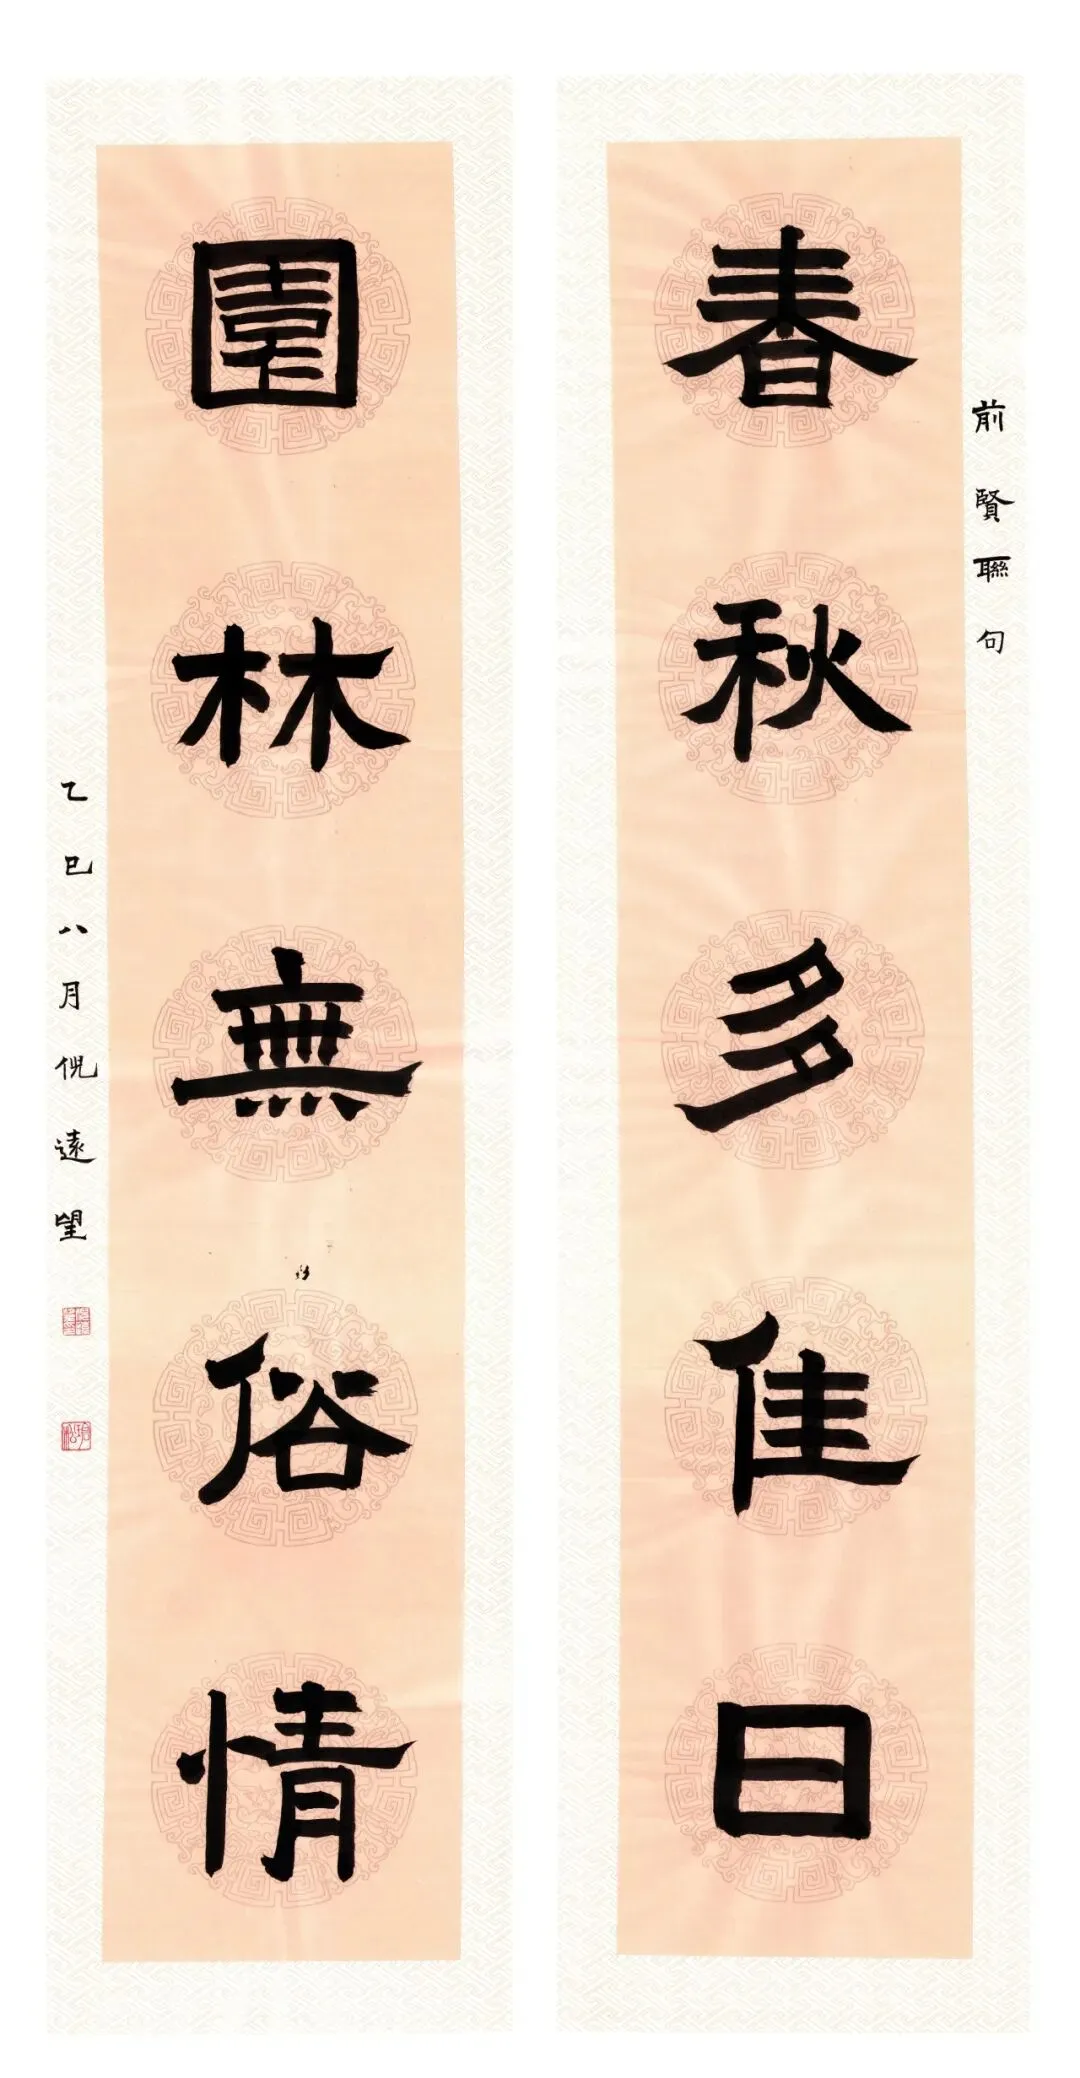 前賢聯句
春秋多佳日
園林無俗情
乙巳八月倪遠望